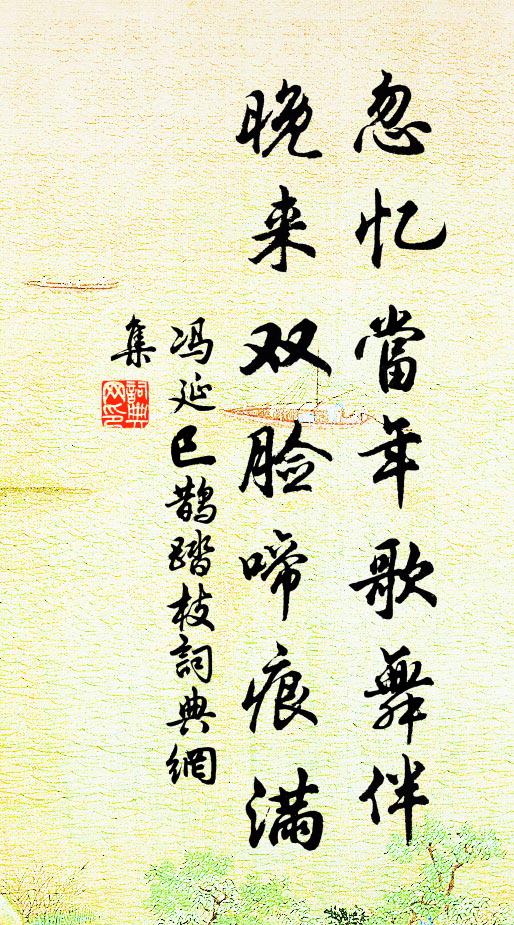 忽忆當年歌舞伴
晚来双脸啼痕满
冯延巳鹊踏枝詞典網
集
詞典
网印